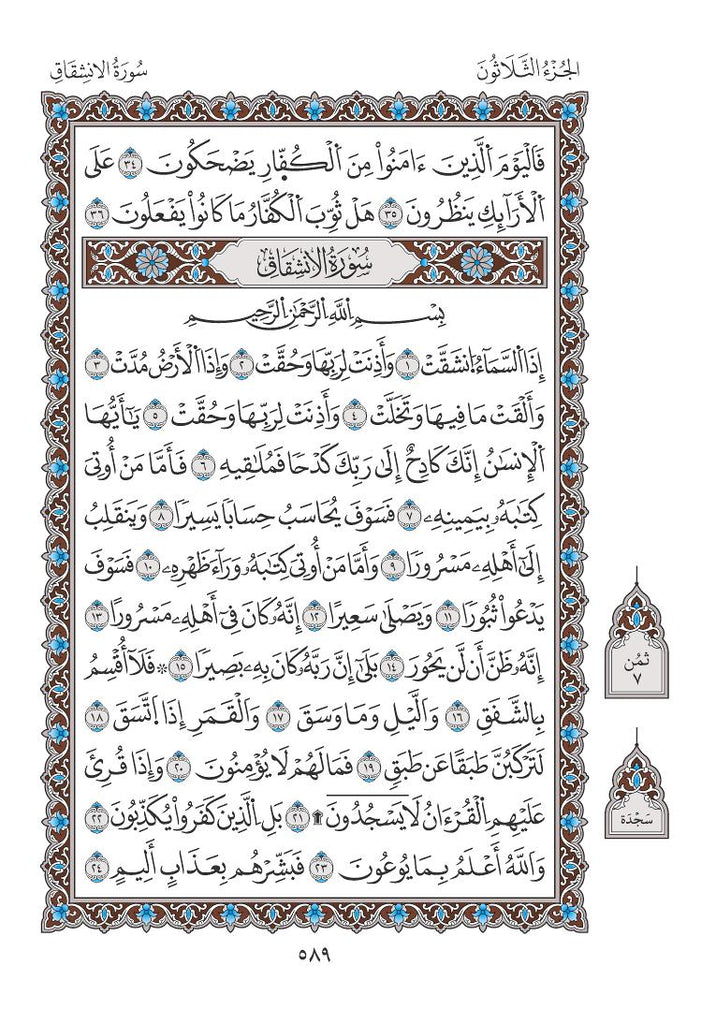 الجُزْءُ الثَّلَاثُونَ
سُورَةُ الانشِقَاقِ
فَٱلْيَوْمَ ٱلَّذِينَ ءَامَنُوا۟ مِنَ ٱلْكُفَّارِ يَضْحَكُونَ ٣٤ عَلَى
ٱلْأَرَآئِكِ يَنظُرُونَ ٣٥ هَلْ ثُوِّبَ ٱلْكُفَّارُ مَا كَانُوا۟ يَفْعَلُونَ ٣٦
سُورَةُ الانشِقَاقِ
بِسْمِ ٱللَّهِ ٱلرَّحْمَٰنِ ٱلرَّحِيمِ
إِذَا ٱلسَّمَآءُ ٱنشَقَّتْ ١ وَأَذِنَتْ لِرَبِّهَا وَحُقَّتْ ٢ وَإِذَا ٱلْأَرْضُ مُدَّتْ ٣
وَأَلْقَتْ مَا فِيهَا وَتَخَلَّتْ ٤ وَأَذِنَتْ لِرَبِّهَا وَحُقَّتْ ٥ يَٰٓأَيُّهَا
ٱلْإِنسَٰنُ إِنَّكَ كَادِحٌ إِلَىٰ رَبِّكَ كَدْحًا فَمُلَٰقِيهِ ٦ فَأَمَّا مَنْ أُوتِىَ
كِتَٰبَهُۥ بِيَمِينِهِۦ ٧ فَسَوْفَ يُحَاسَبُ حِسَابًا يَسِيرًا ٨ وَيَنقَلِبُ
إِلَىٰٓ أَهْلِهِۦ مَسْرُورًا ٩ وَأَمَّا مَنْ أُوتِىَ كِتَٰبَهُۥ وَرَآءَ ظَهْرِهِۦ ١٠ فَسَوْفَ
يَدْعُوا۟ ثُبُورًا ١١ وَيَصْلَىٰ سَعِيرًا ١٢ إِنَّهُۥ كَانَ فِىٓ أَهْلِهِۦ مَسْرُورًا ١٣
إِنَّهُۥ ظَنَّ أَن لَّن يَحُورَ ١٤ بَلَىٰٓ إِنَّ رَبَّهُۥ كَانَ بِهِۦ بَصِيرًا ١٥ * فَلَآ أُقْسِمُ
بِٱلشَّفَقِ ١٦ وَٱلَّيْلِ وَمَا وَسَقَ ١٧ وَٱلْقَمَرِ إِذَا ٱتَّسَقَ ١٨
لَتَرْكَبُنَّ طَبَقًا عَن طَبَقٍ ١٩ فَمَا لَهُمْ لَا يُؤْمِنُونَ ٢٠ وَإِذَا قُرِئَ
عَلَيْهِمُ ٱلْقُرْءَانُ لَا يَسْجُدُونَ ۩ ٢١ بَلِ ٱلَّذِينَ كَفَرُوا۟ يُكَذِّبُونَ ٢٢
وَٱللَّهُ أَعْلَمُ بِمَا يُوعُونَ ٢٣ فَبَشِّرْهُم بِعَذَابٍ أَلِيمٍ ٢٤
ثُمُن
٧
سَجْدَة
٥٨٩